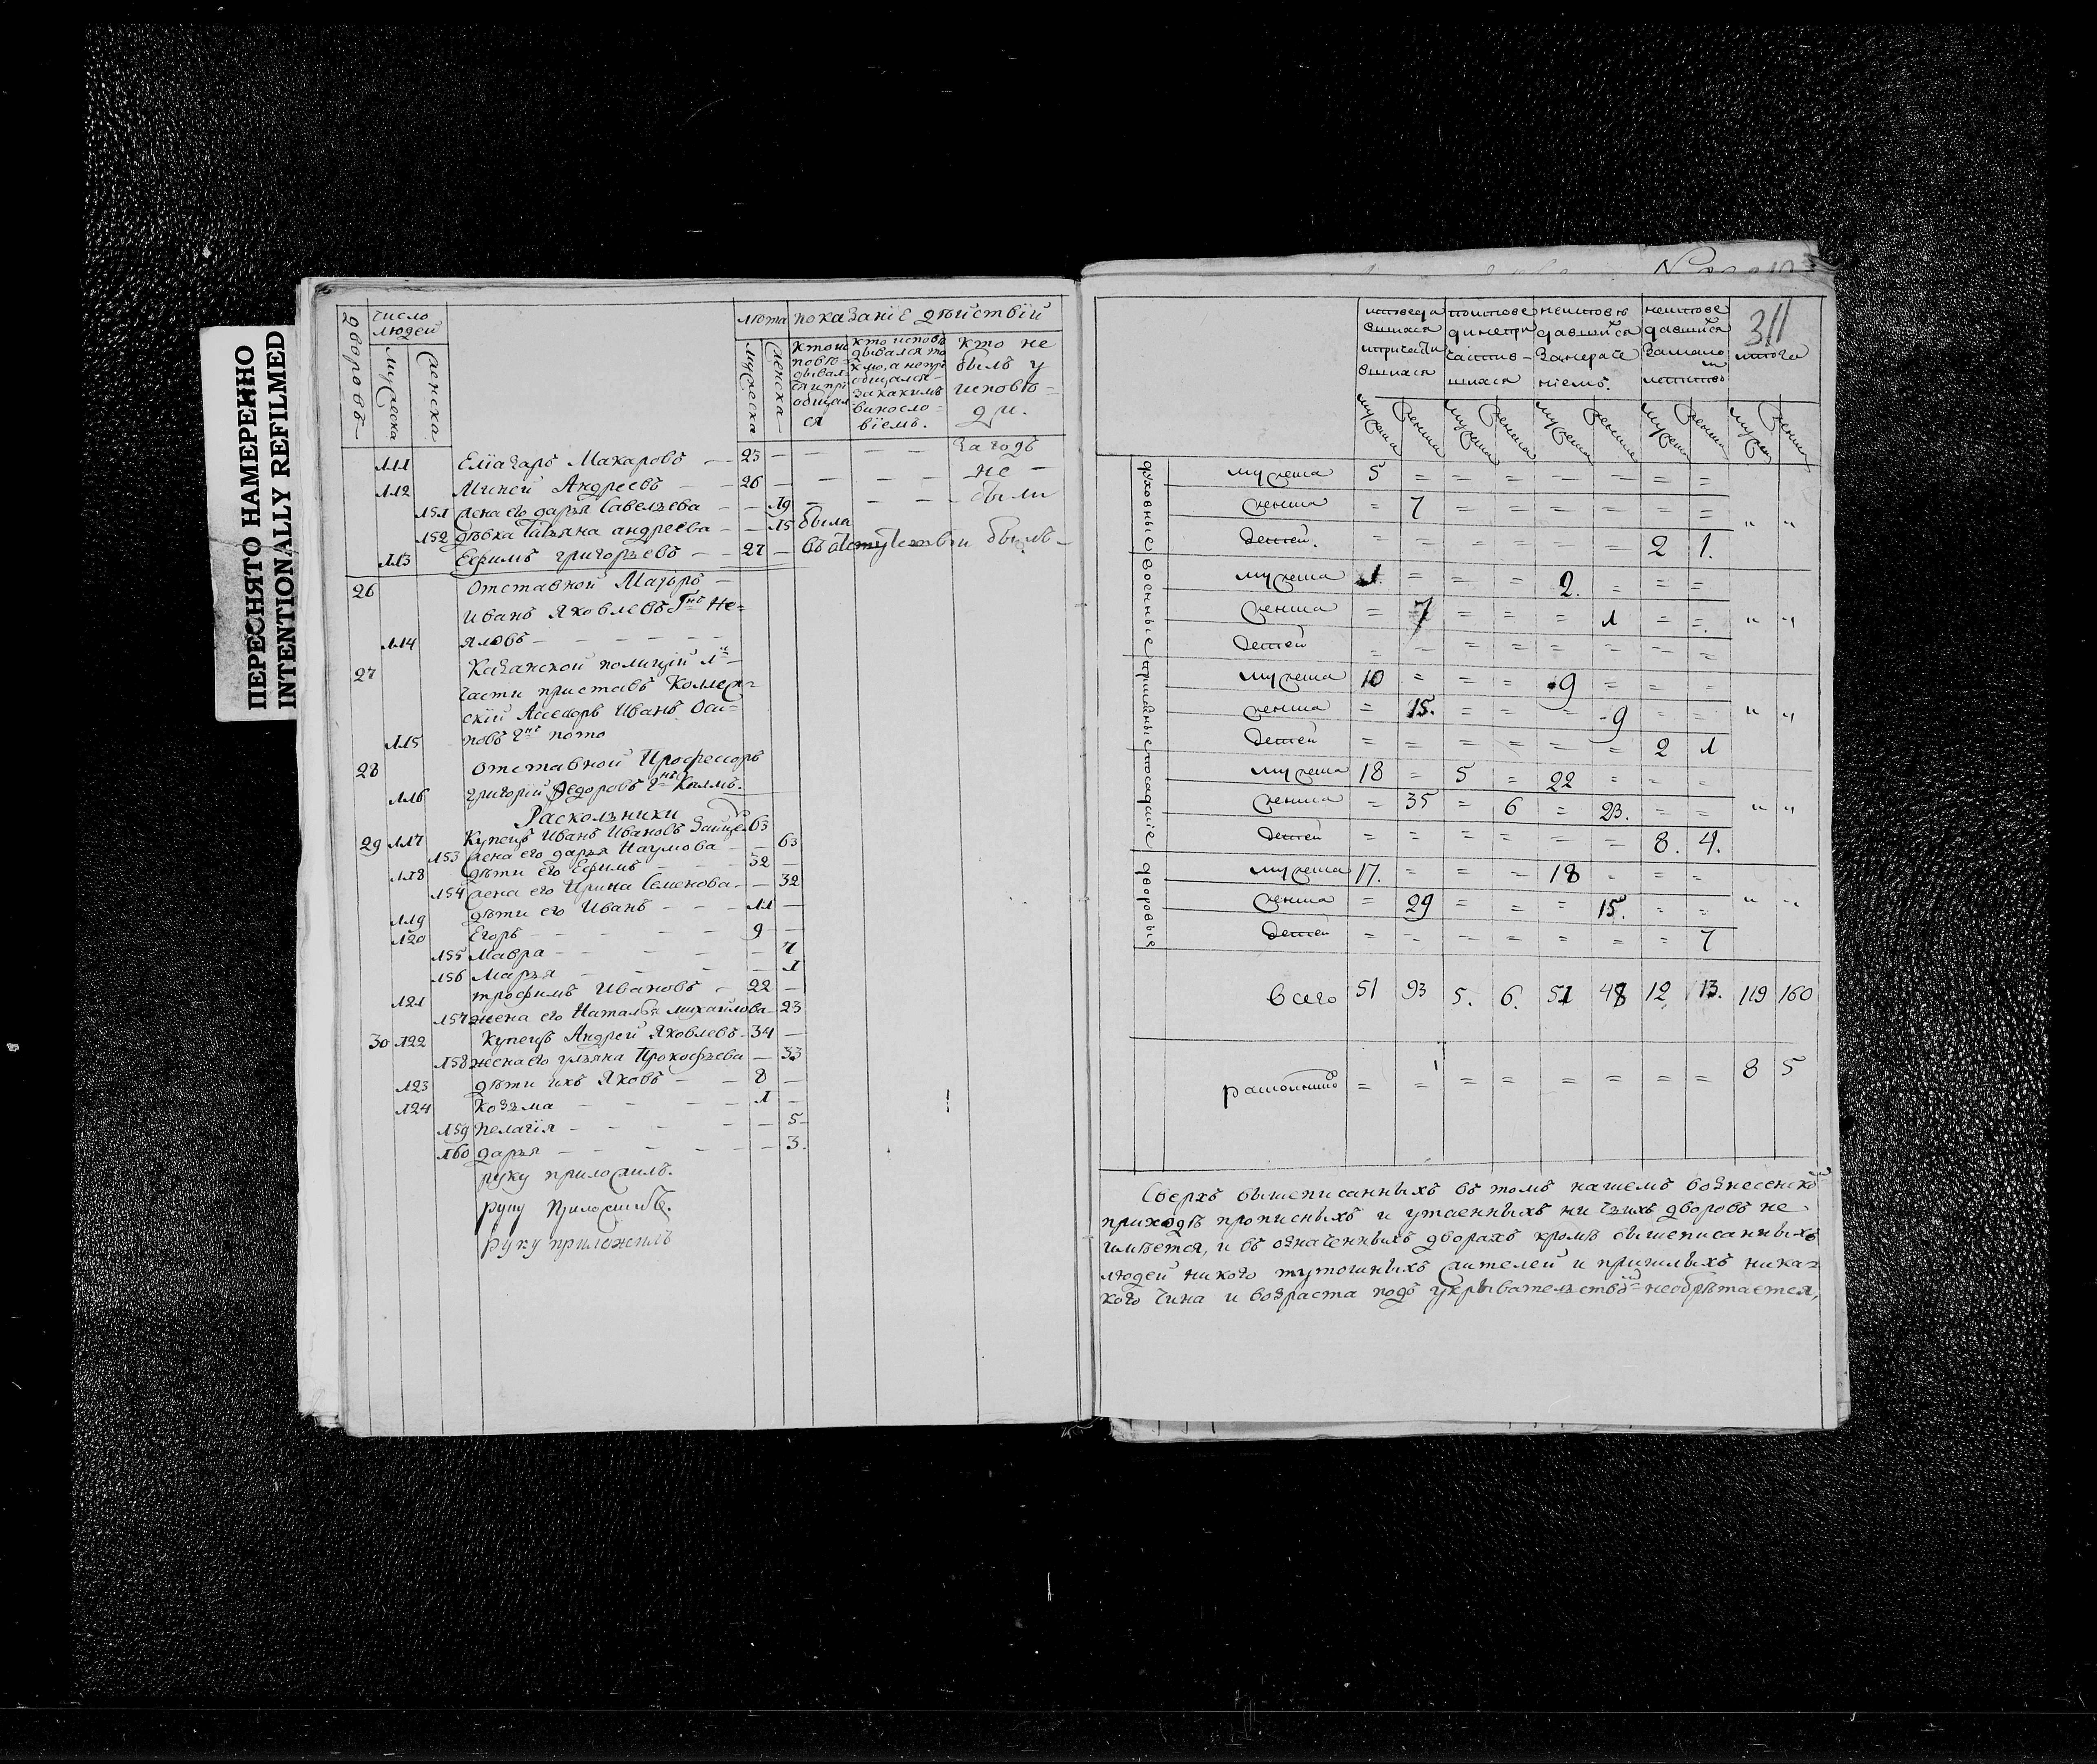 ПЕРЕСНЯТО НАМЕРЕННО
INTENTIONALLY REFILMED
дворовъ
число людей
мужеска
женска
лѣта
мужеска
женска
показанїе дѣйствїй
кто исповѣдывался и прїобщался
кто исповѣдывался токмо, а не прїобщался и за какимъ винословїемъ.
кто не былъ у исповѣди.
111 Елїазаръ Макаровъ — 23 — — — — за годъ
112 Миней Андреевъ — 26 — — — — не —
151 жена его дарья Савельева — — 19 — — — были
152 дѣвка Татьяна андреева — — 15 была
113 Ефимъ григорьевъ — 27 — въ отсутствїи былъ —
26 Отставной Маїоръ —
Иванъ Яковлевъ Гнъ Не=
114 яловъ — — — — — —
27 Казанской полицїи 1й
части приставъ Коллеж=
скїй Ассесоръ Иванъ Оси=
115 повъ
28 Отставной Професоръ
116 григорїй Федоровъ
Раскольники
29 117 Купецъ Иванъ Ивановъ Зайцев 63
153 жена его дарья Наумова — — 63
118 дѣти его Ефимъ — — 32 —
154 жена его Ирина Семенова — — 32
119 дѣти его Иванъ — — — 11 —
120 Егоръ — — — — 9 —
155 Мавра — — — — 7
156 Марья — — — — 1
121 трофимъ Ивановъ — 22 —
157 жена его Наталья михайлова — 23
30 122 Купецъ Андрей Яковлевъ — 34 —
158 жена его ульяна Прокофьева — 33
123 дѣти ихъ Яковъ — — 8 —
124 Козьма — — — — 1 —
159 пелагїя — — — — — 5
160 дарья — — — — — — 3.
руку приложилъ.
руку приложилъ.
руку приложилъ
311
исповедавшихся и причастившихся
по исповеди не причастившихся
не исповедавшихся за нераченїемъ.
не исповедавшихся за малолетством
итого
мужеска женска мужеска женска мужеска женска мужеска женска мужеска женска
духовные
мужеска 5 = = = = = = =
женска = 7 = = = = = =
детей. = = = = = = 2 1. " "
военные
мужеска 1. = = = 2. = = =
женска = 7 = = = 1 = =. " "
детей = = = = = = = =
приказные
мужеска 10 = = = 9 = = =
женска = 15. = = = 9 = = " "
детей = = = = = = 2 1
посадские
мужеска 18 = 5 = 22 = = =
женска = 35 = 6 = 23. = = " "
детей = = = = = = 8. 4.
дворовые
мужеска 17. = = = 18 = = =
женска = 29 = = = 15. = = " "
детей = = = = = = = 7
всего 51 93 5. 6. 51 48 12 13. 119 160
раскольниковъ = = = = = = = = 8 5
Сверхъ вышеписанныхъ въ томъ нашемъ вознесенскомъ
приходѣ прописныхъ и утаенныхъ ни чьихъ дворовъ не
имѣется, и въ означенныхъ дворахъ кромѣ вышеписанныхъ
людей никого тутошныхъ жителей и пришлыхъ ника=
кого чина и возраста подъ укрывательствомъ необрѣтается,